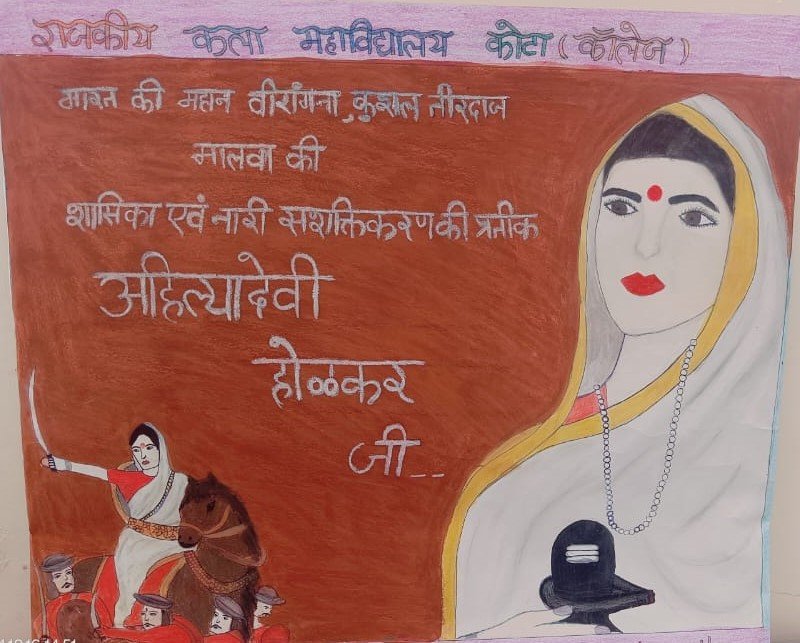 राजकीय कला महाविद्यालय कोटा (कॉलेज)
भारत की महान वीरांगना, कुशल तीरंदाज
मालवा की
शासिका एवं नारी सशक्तिकरण की प्रतीक
अहिल्यादेवी
होळकर
जी --